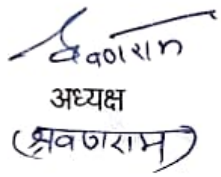 श्रवणराम
अध्यक्ष
(श्रवणराम)